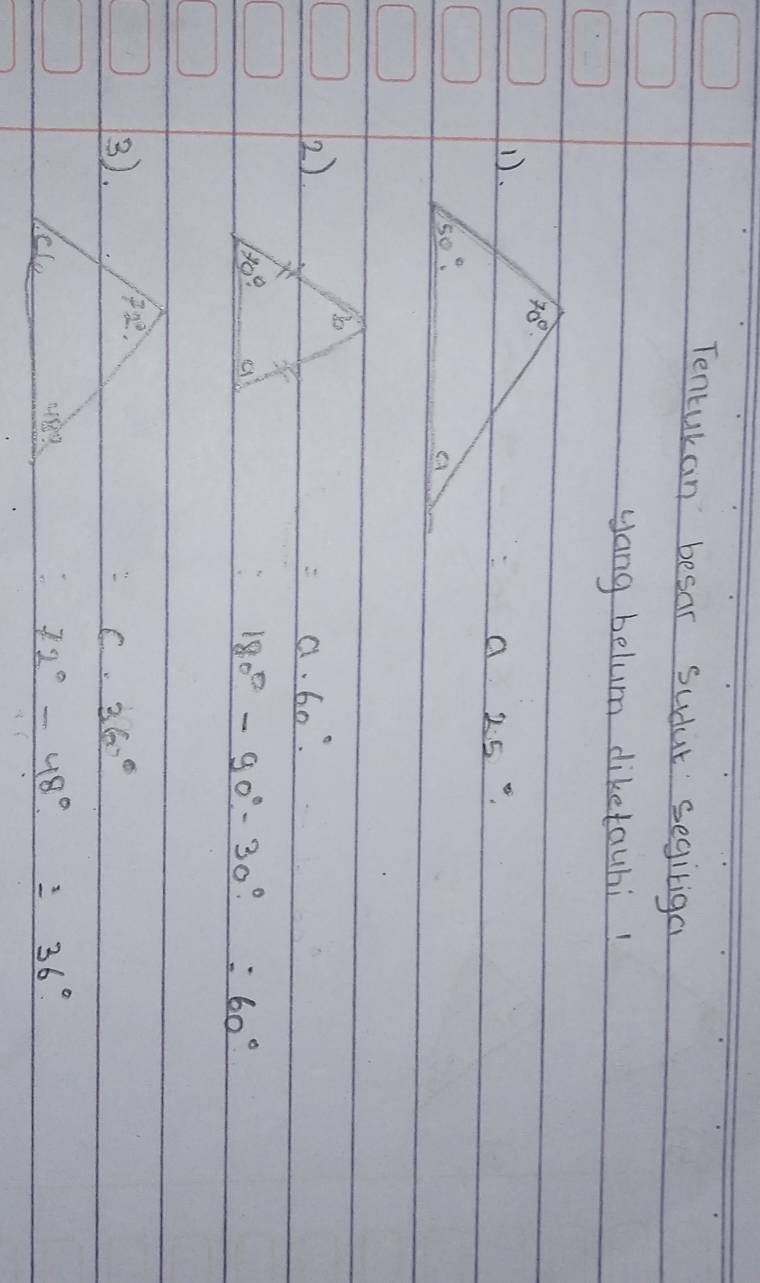 Tentukan besar sudut segitiga
yang belum diketauhi !
1).
70°.
50°.
a
: a 25°.
2)
b
70°.
a
= a. 60°.
: 180° - 90° - 30° = 60°
3).
72°.
c
48°
= C. 36°
: 72° - 48° = 36°